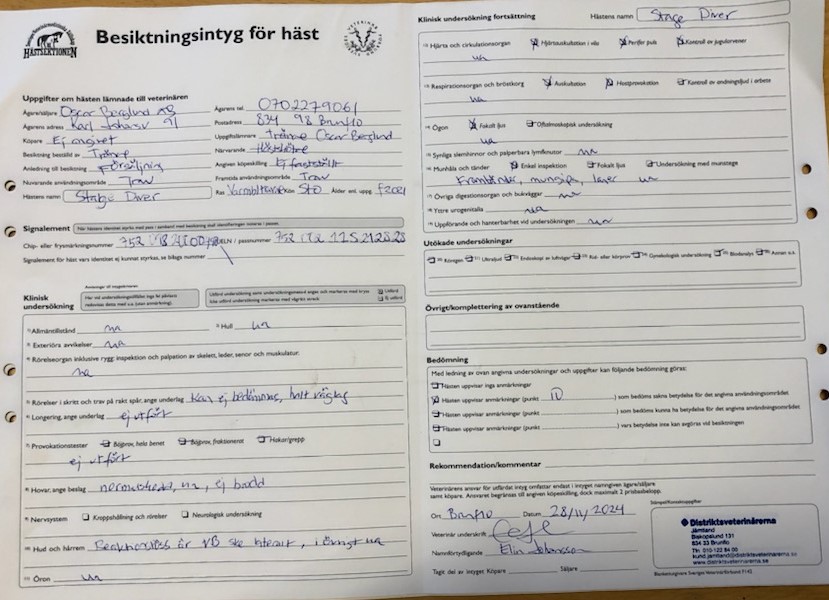 HÄSTSEKTIONEN
Besiktningsintyg för häst
Uppgifter om hästen lämnade till veterinären
Ägare/säljare Oscar Berglund AB
Ägarens tel. 0702279061
Ägarens adress Karl Johansv 91
Postadress 834 98 Brunflo
Köpare Ej angivet
Uppgiftslämnare Tränare Oscar Berglund
Besiktning beställd av Tränare
Närvarande Hästskötare
Anledning till besiktning Försäljning
Angiven köpeskilling Ej fastställt
Nuvarande användningsområde Trav
Framtida användningsområde Trav
Hästens namn Stage Diver
Ras Varmbl travare Kön Sto Ålder enl. uppg f2021
Signalement
Chip- eller frysmärkningsnummer
UELN / passnummer
Signalement för häst vars identitet ej kunnat styrkas, se bilaga nummer
Klinisk undersökning
Utförd
Ej utförd
1) Allmäntillstånd ua
2) Hull ua
3) Exteriöra avvikelser ua
4) Rörelseorgan inklusive rygg: inspektion och palpation av skelett, leder, senor och muskulatur:
ua
5) Rörelser i skritt och trav på rakt spår, ange underlag Kan ej bedömas, halt väglag
6) Longering, ange underlag ej utfört
7) Provokationstester Böjprov, hela benet Böjprov, fraktionerat Hakar/grepp
ej utfört
8) Hovar, ange beslag normalskodd, ua, ej barfota
9) Nervsystem Kroppshållning och rörelser Neurologisk undersökning
10) Hud och hårrem
i övrigt ua
11) Öron ua
Klinisk undersökning fortsättning
Hästens namn Stage Diver
12) Hjärta och cirkulationsorgan Hjärtauskultation i vila Perifer puls Kontroll av jugularvener
ua
13) Respirationsorgan och bröstkorg Auskultation Hostprovokation Kontroll av andningsljud i arbete
ua
14) Ögon Fokalt ljus Oftalmoskopisk undersökning
ua
15) Synliga slemhinnor och palperbara lymfknutor ua
16) Munhåla och tänder Enkel inspektion Fokalt ljus Undersökning med munstege
Framtänder, mungipa, laner ua
17) Övriga digestionsorgan och bukväggar ua
18) Yttre urogenitalia ua
19) Uppförande och hanterbarhet vid undersökningen ua
Utökade undersökningar
20) Röntgen 21) Ultraljud 22) Endoskopi av luftvägar 24) Gynekologisk undersökning 25) Blodanalys 26) Annan u.s.
Övrigt/komplettering av ovanstående
Bedömning
Med ledning av ovan angivna undersökningar och uppgifter kan följande bedömning göras:
Hästen uppvisar inga anmärkningar
Hästen uppvisar anmärkningar (punkt 10) som bedöms sakna betydelse för det angivna användningsområdet
Hästen uppvisar anmärkningar (punkt ) som bedöms kunna ha betydelse för det angivna användningsområdet
Hästen uppvisar anmärkningar (punkt ) vars betydelse inte kan avgöras vid besiktningen
Rekommendation/kommentar
Veterinärens ansvar för utfärdat intyg omfattar endast i intyget namngiven ägare/säljare
samt köpare. Ansvaret begränsas till angiven köpeskilling, dock maximalt 2 prisbasbelopp.
Ort Brunflo Datum 28/11 2024
Veterinär underskrift
Namnförtydligande Elin Johansson
Tagit del av intyget: Köpare Säljare
Stämpel/kontaktuppgifter
Distriktsveterinärerna
Jämtland
Biskopslund 131
834 33 Brunflo
Tfn 010-122 84 00
kund.jamtland@distriktsveterinarerna.se
www.distriktsveterinarerna.se